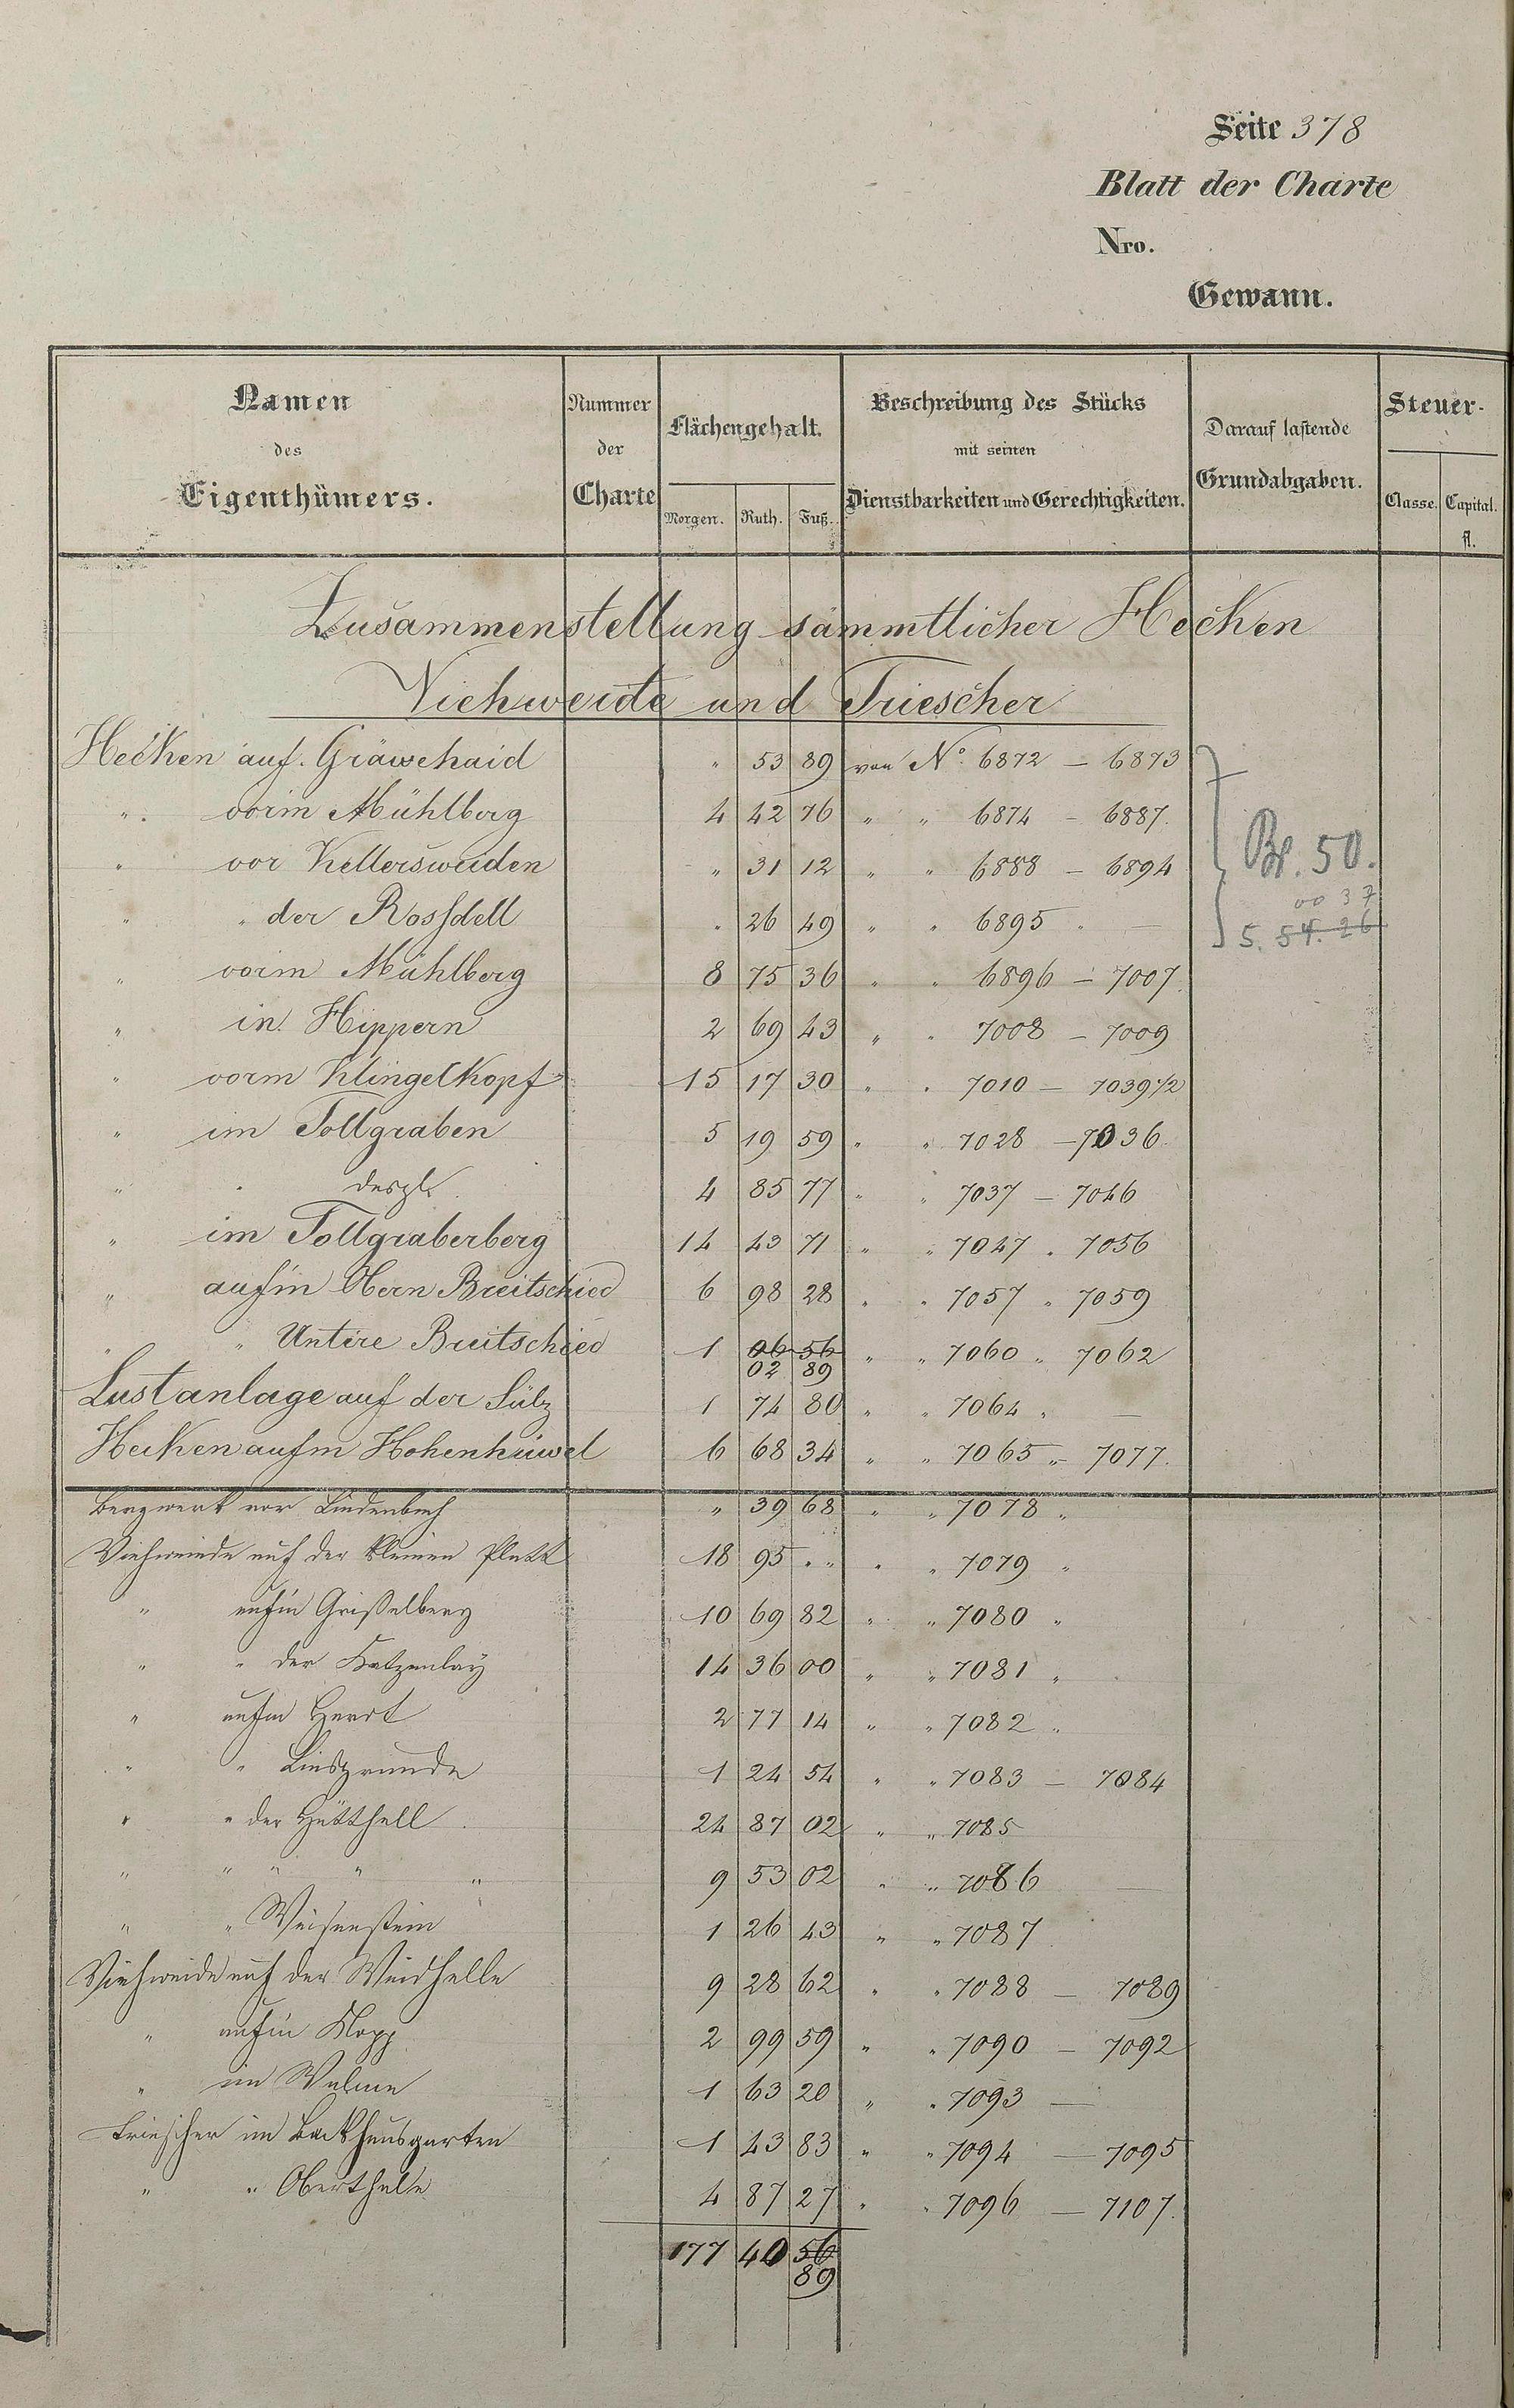 Seite 378
Blatt der Charte
Nro.
Gewann.
Namen des Eigenthümers.
Nummer der Charte
Flächengehalt.
Morgen. Ruth. Fuß.
Beschreibung des Stücks mit seinen Dienstbarkeiten und Gerechtigkeiten.
Darauf lastende Grundabgaben.
Steuer-
Classe. Capital.
fl.
Zusammenstellung sämmtlicher Hecken
Viehweide und Triescher
Hecken auf. Gräwehaid " 53 89 von No. 6872 - 6873
" vorm Mühlberg 4 42 76 " " 6874 - 6887.
" vor Kellersweiden " 31 12 " " 6888 - 6894
" " der Rossdell " 26 49 " " 6895 " —
50.
00 37
5. 54. 26
" vorm Mühlberg 8 75 36 " " 6896 - 7007.
" in Hippern 2 69 43 " " 7008 - 7009
" vorm Klingelkopf 15 17 30 " " 7010 - 7039 1/2
" im Tollgraben 5 19 59 " " 7028 - 7036
" " desgl. 4 85 77 " " 7037 - 7046
" im Tollgraberberg 14 43 71 " " 7047 " 7056
" aufm Obern Breitschied 6 98 28 " " 7057 " 7059
" " Untere Breitschied 1 06 56 " " 7060 " 7062
02 89
Lustanlage auf der Sülz 1 74 80 " " 7064 " —
Hecken aufm Hohenhüwel 6 68 34 " " 7065 " 7077.
Bergwerk vor Lindenbach " 39 68 " " 7078 "
Viehweide auf der kleinen Platt 18 95 " " " " 7079 "
" aufm Grißelberg 10 69 82 " " 7080 "
" " der Katzenlay 14 36 00 " " 7081 "
" aufm 2 77 14 " " 7082 "
" " 1 24 54 " " 7083 - 7084
" " der Hütthell 24 87 02 " " 7085
" " " " " 9 53 02 " " 7086 —
" " Weisenstein 1 26 43 " " 7087
Viehweide auf der Weidhelle 9 28 62 " " 7088 - 7089
" aufm Kopp 2 99 59 " " 7090 - 7092
" im 1 63 20 " " 7093 —
Triescher im Backhausgarten 1 43 83 " " 7094 - 7095
" " Oberthale 4 87 27 " " 7096 - 7107.
177 40 56
89